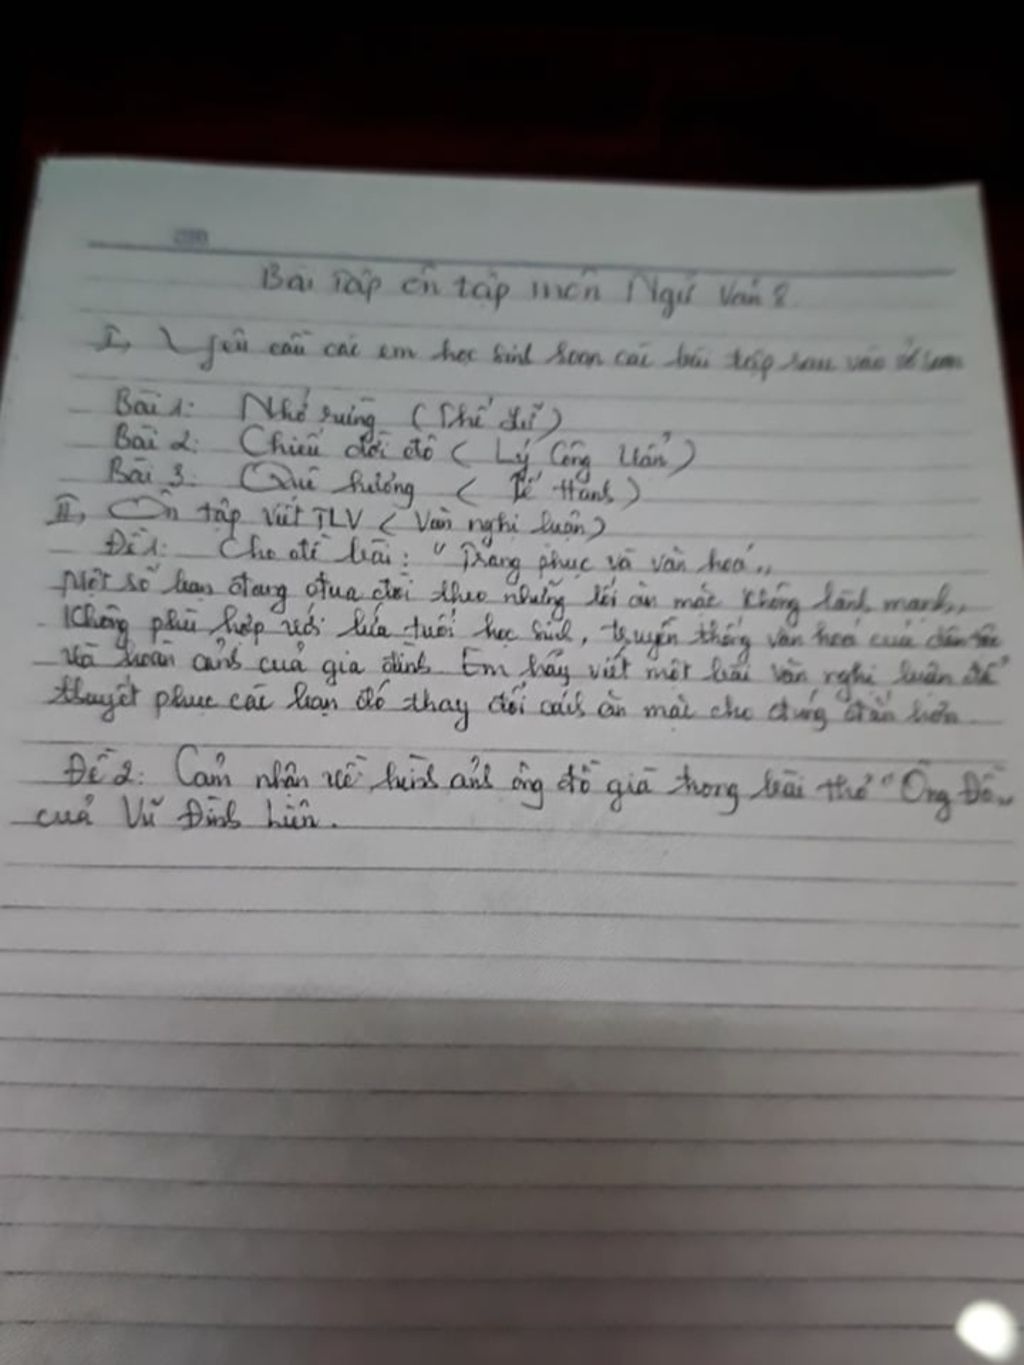 Bài Tập ôn tập môn Ngữ Văn 8
I, Yêu cầu các em học sinh soạn các bài tập sau vào vở soạn
Bài 1: Nhớ rừng (Thế Lữ)
Bài 2: Chiếu dời đô (Lý Công Uẩn)
Bài 3: Quê hương (Tế Hanh)
II, Ôn tập viết TLV (Văn nghị luận)
Đề 1: Cho đề bài: "Trang phục và văn hoá"
Một số bạn đang đua đòi theo những lối ăn mặc không lành mạnh,
Không phù hợp với lứa tuổi học sinh, truyền thống văn hoá của dân tộc
và hoàn cảnh của gia đình. Em hãy viết một bài văn nghị luận để
thuyết phục các bạn đó thay đổi cách ăn mặc cho đúng đắn hơn.
Đề 2: Cảm nhận về hình ảnh ông đồ già trong bài thơ "Ông Đồ"
của Vũ Đình Liên.